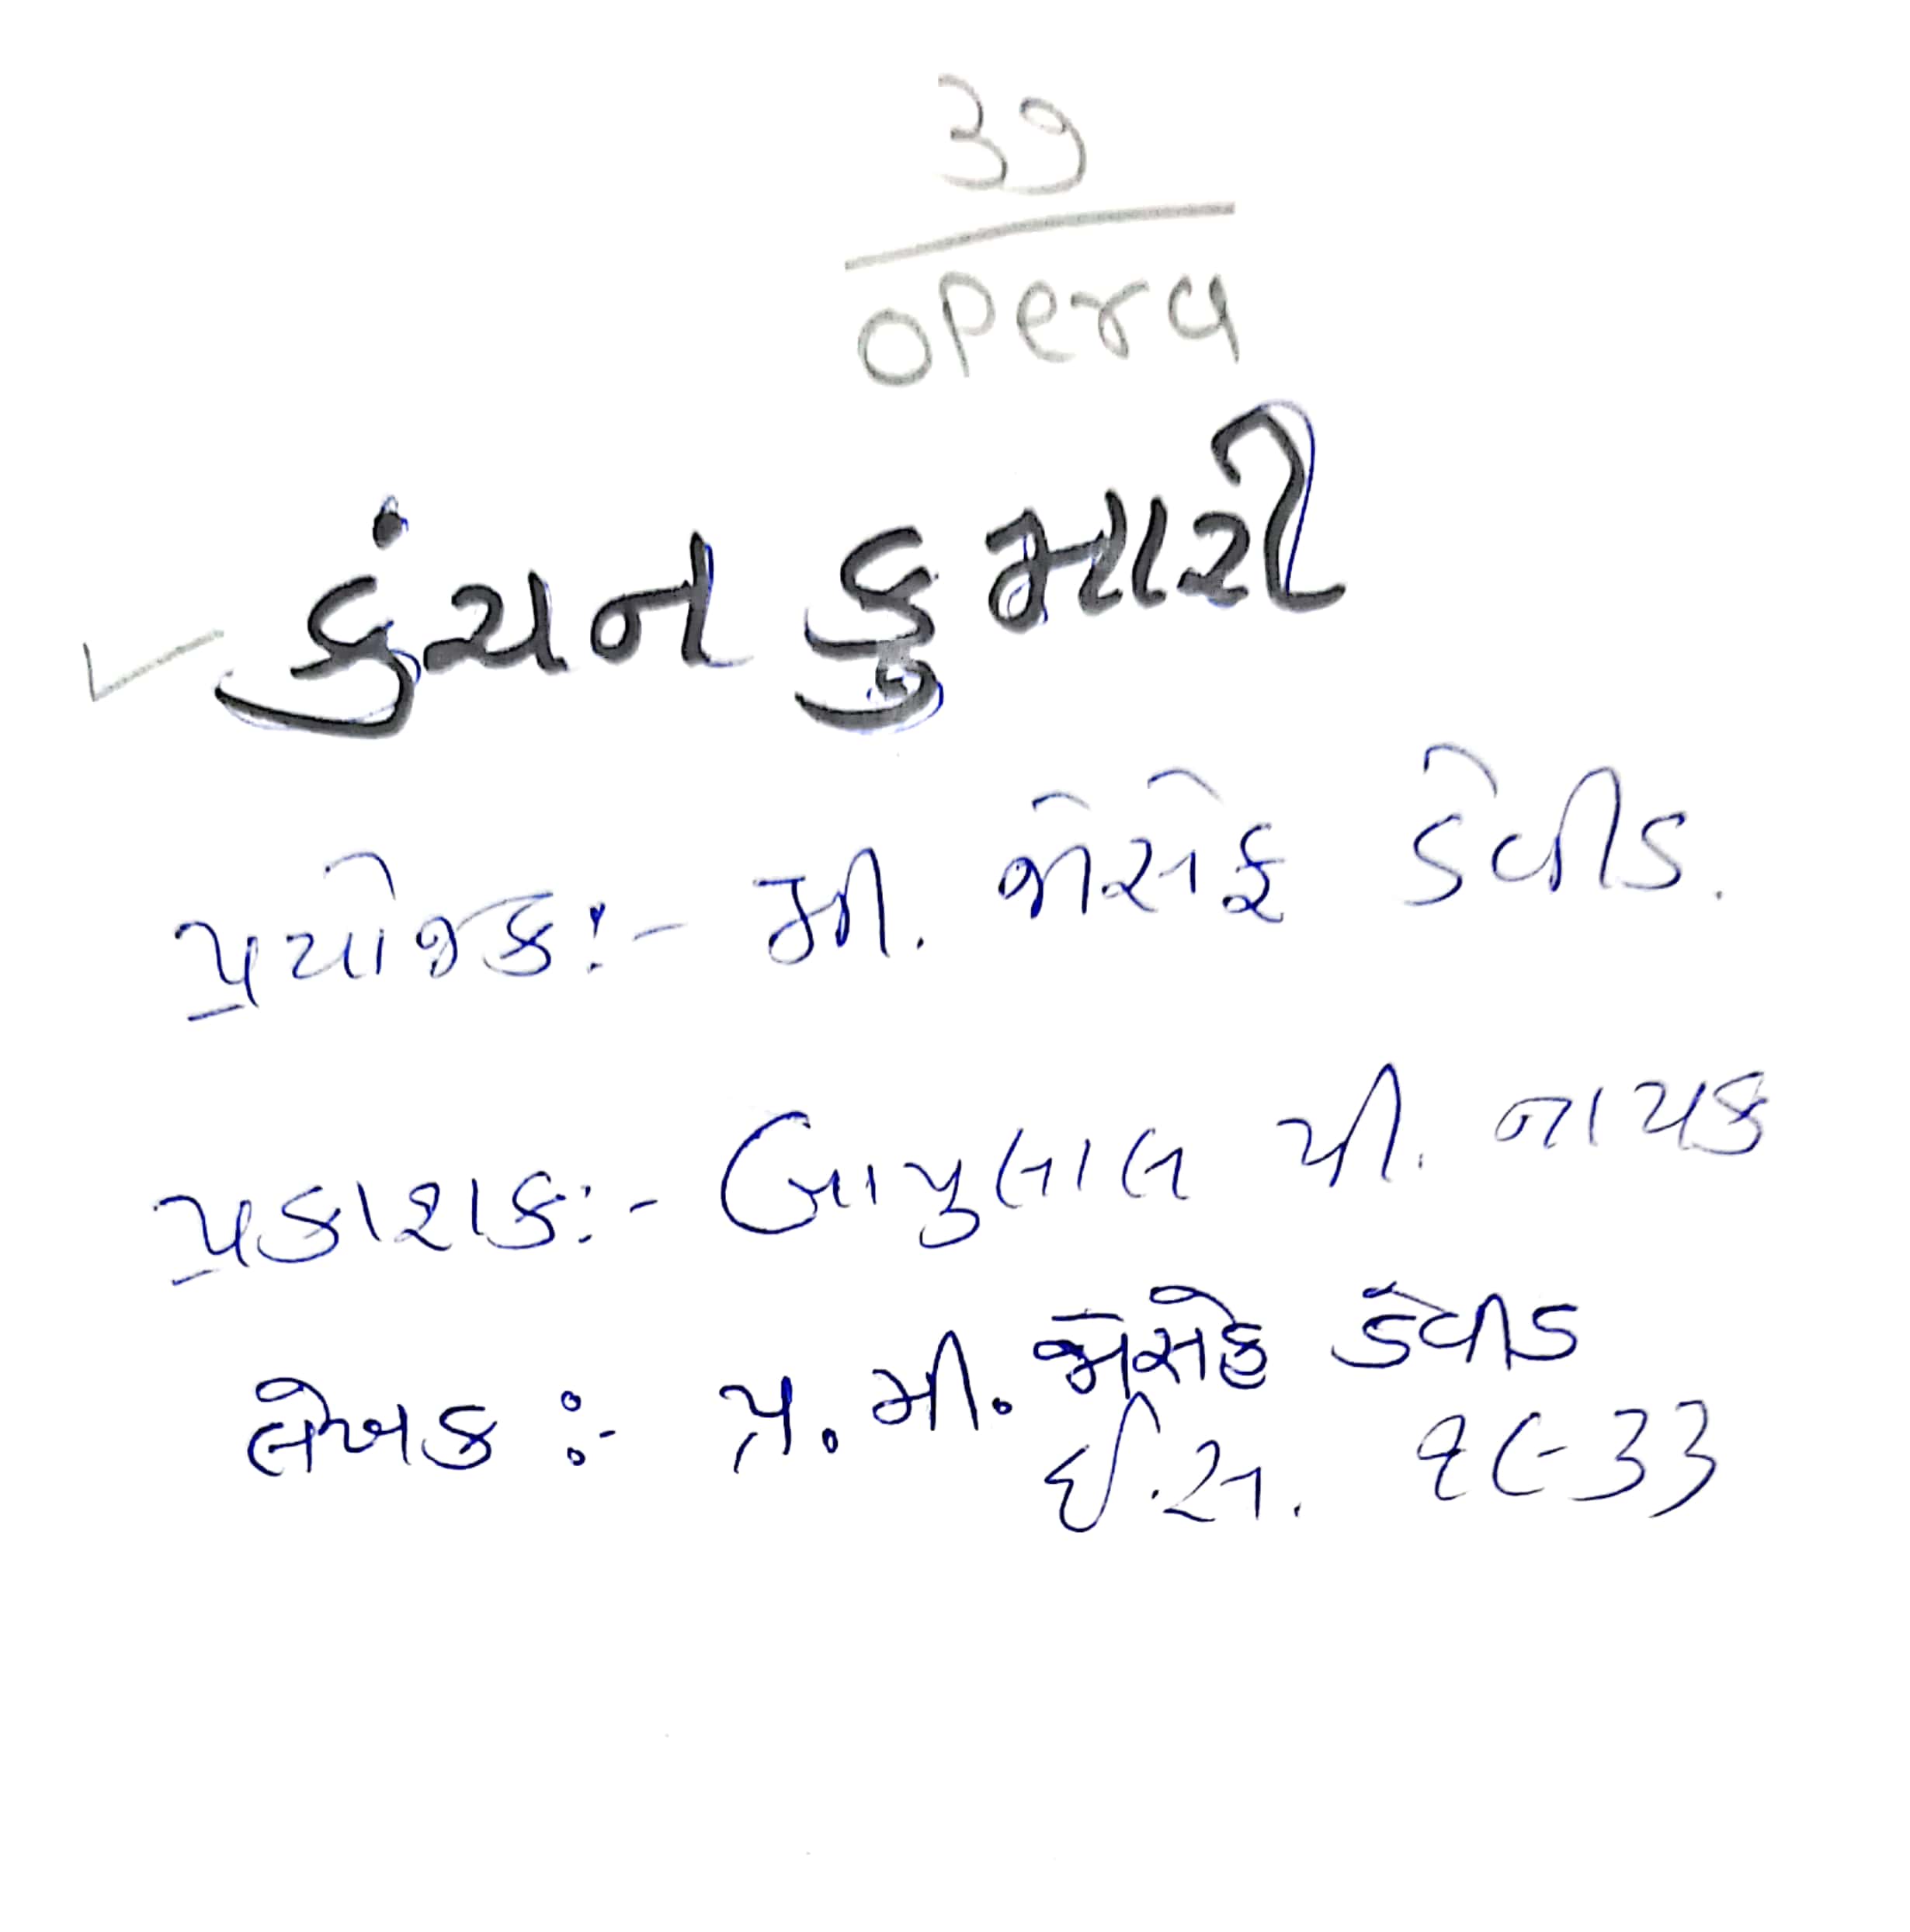 ૩૭
opera
કુંચન કુમારી
પ્રયોજક:- મી. જોસેફ ડેવીડ.
પ્રકાશક:- બાપુલાલ પી. નાયક
લેખક :- પ્ર. મી. જોસેફ ડેવીડ
ઈ.સ. ૧૯૩૩